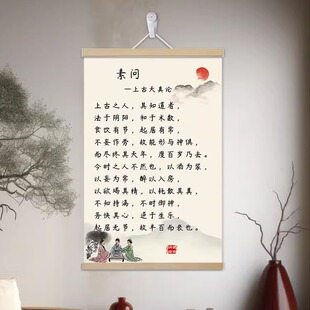 素问
—上古天真论
上古之人，其知道者，
法于阴阳，和于术数，
食饮有节，起居有常，
不妄作劳，故能形与神俱，
而尽终其天年，度百岁乃去。
今时之人不然也，以酒为浆，
以妄为常，醉以入房，
以欲竭其精，以耗散其真，
不知持满，不时御神，
务快其心，逆于生乐，
起居无节，故半百而衰也。